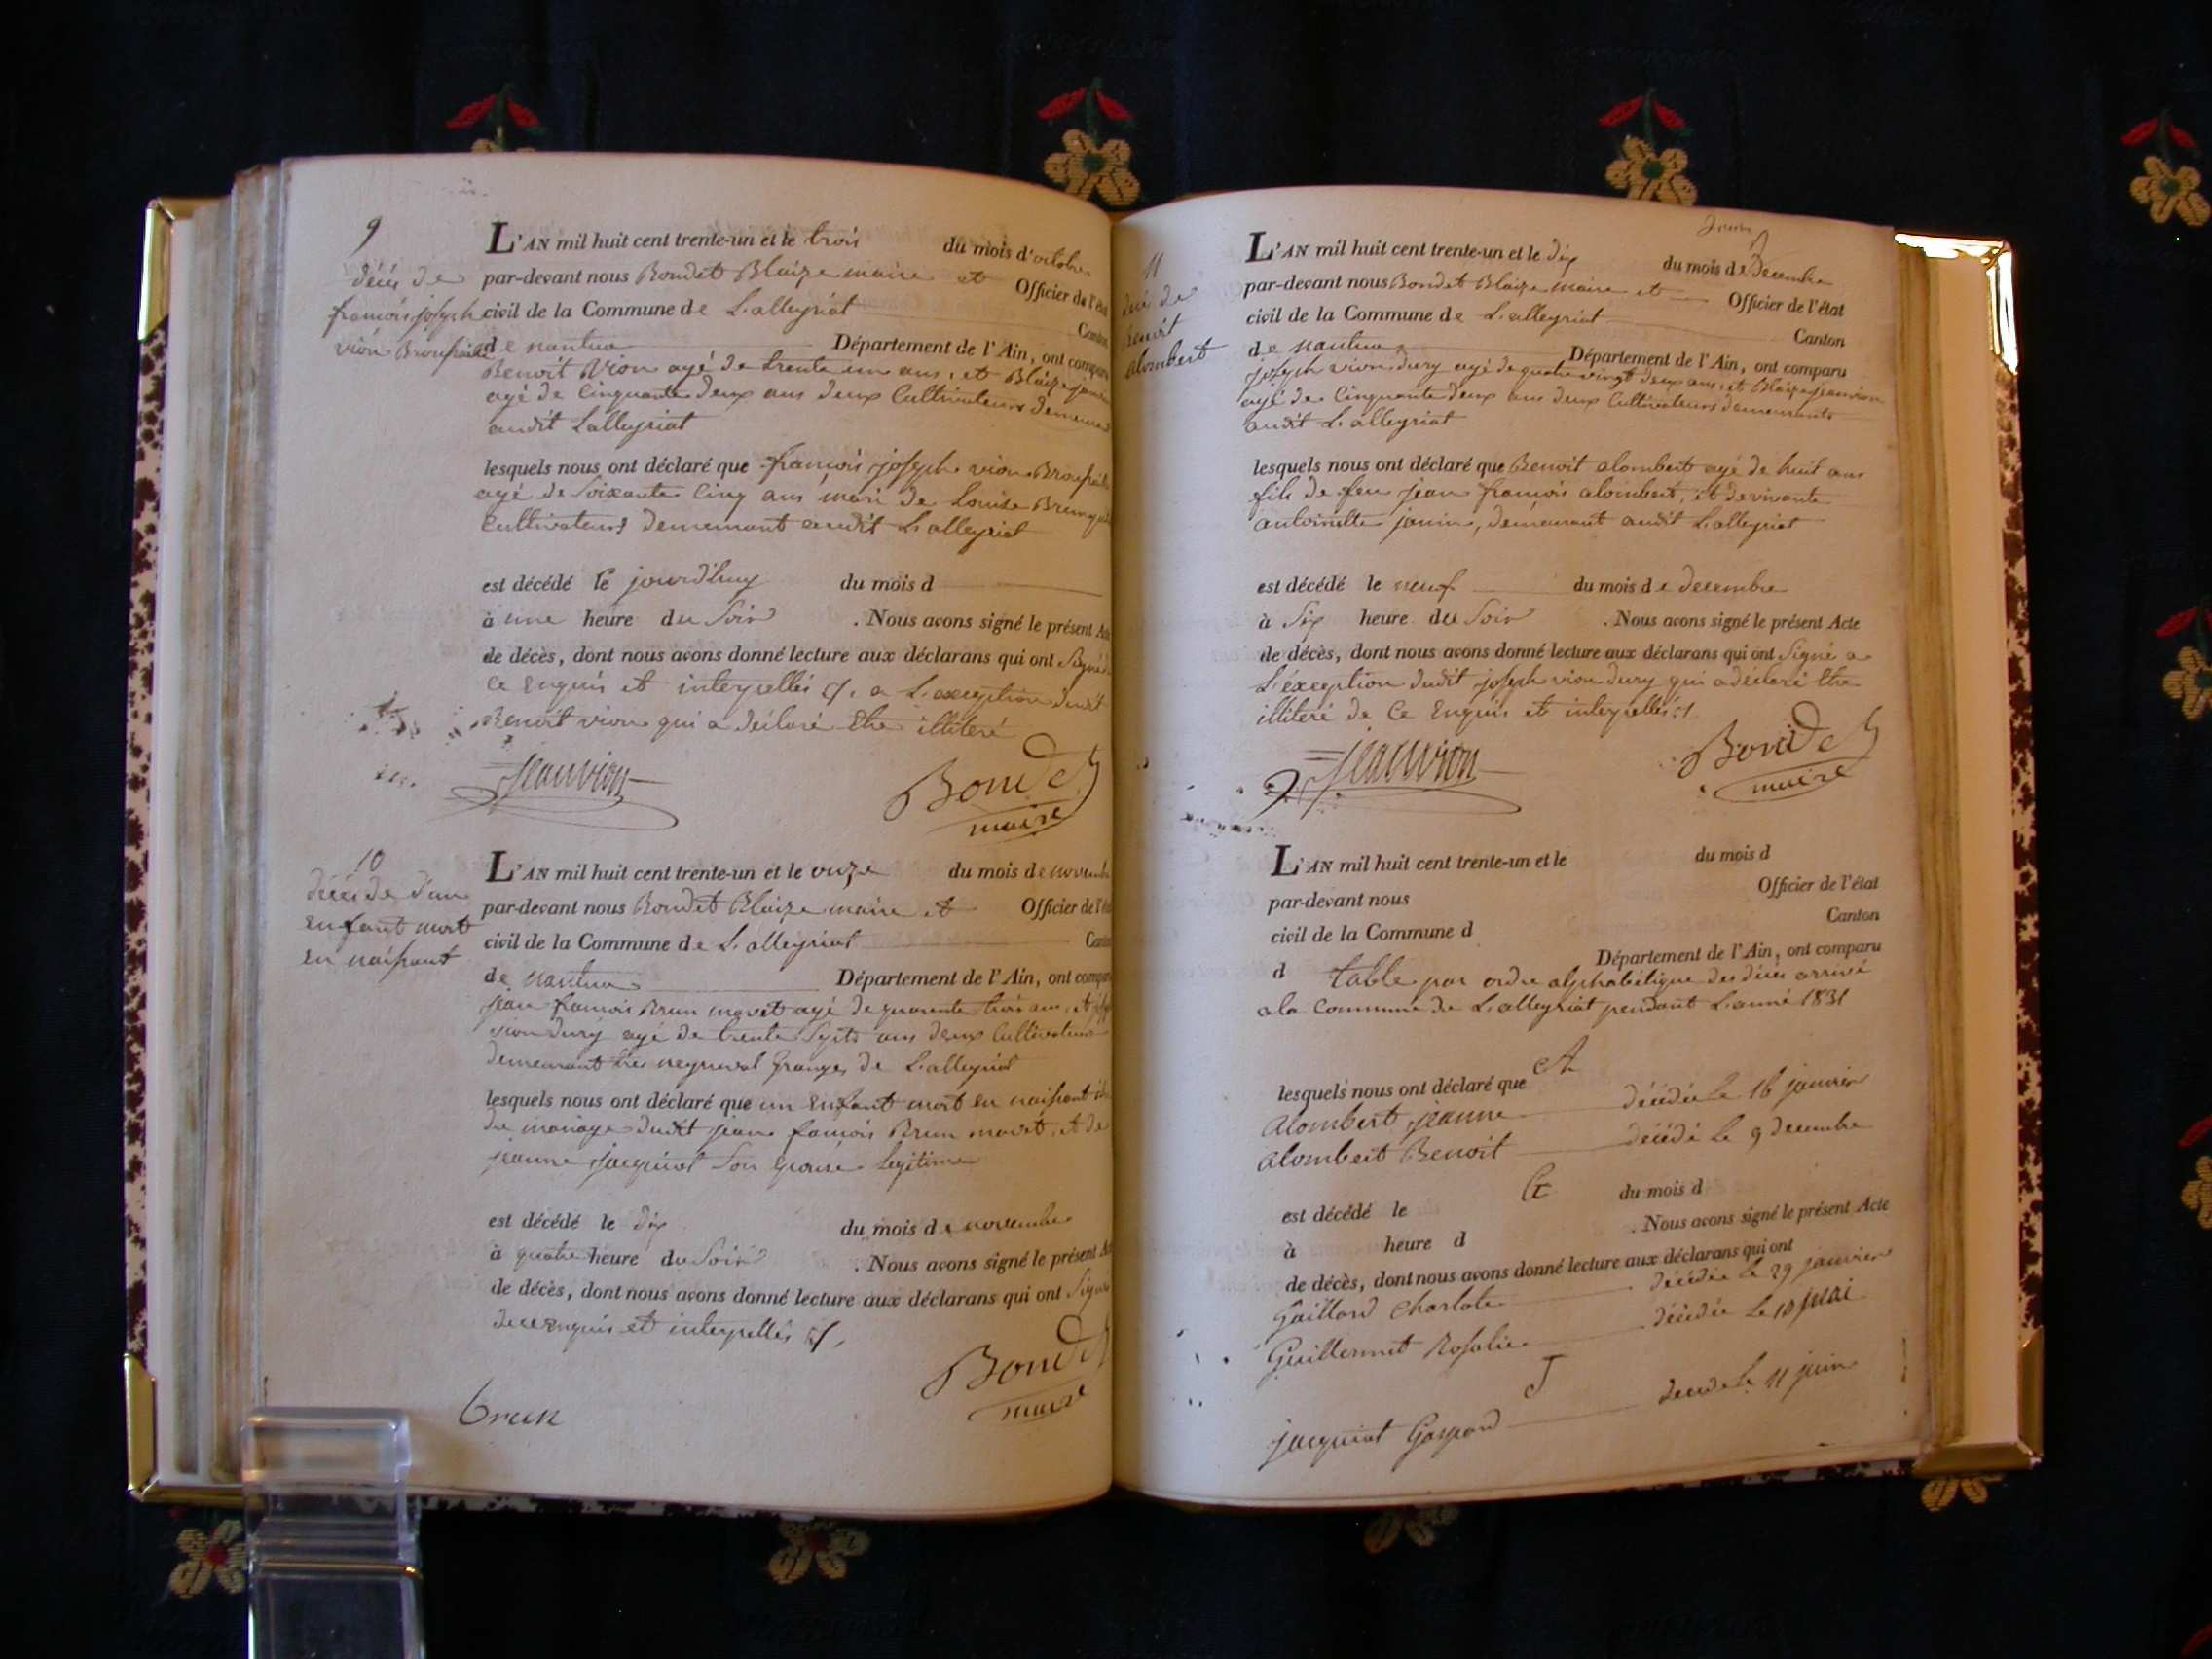 9
décès de
françois joseph
vion Bronfaill
L'AN mil huit cent trente-un et le trois du mois d'octobre
par-devant nous Bondet Blaize maire et Officier de l'état
civil de la Commune de L'alleyriat Canton
de nantua Département de l'Ain, ont comparu
Benoit Vion agé de trente un ans, et Blaize jeanvion
agé de Cinquante deux ans deux Cultivateurs demeurant
audit Lalleyriat
lesquels nous ont déclaré que françois joseph vion
agé de Soixante Cinq ans mari de Louise
Cultivateurs demeurant audit L'alleyriat
est décédé le jourd'huy du mois d
à une heure du Soir . Nous avons signé le présent Acte
de décès, dont nous avons donné lecture aux déclarans qui ont Signé
Ce Enquis et interpellés a L'exception dudit
Benoit vion qui a déclaré Etre illitéré
jeanvion Bondet
maire
10
décès de d'un
enfant mort
en naissant
L'AN mil huit cent trente-un et le onze du mois de novembre
par-devant nous Bondet Blaize maire et Officier de l'état
civil de la Commune de L'alleyriat Canton
de nantua Département de l'Ain, ont comparu
jean françois Brun movet agé de quarante trois ans, et joseph
vion dury agé de trente Septs ans deux Cultivateurs
demeurant granges de L'alleyriat
lesquels nous ont déclaré que un Enfant mort en naissant
du mariage dudit jean françois Brun movet, et de
jeanne jacquiot Son Epouse legitime
est décédé le dix du mois de novembre
à quatre heure du Soir . Nous avons signé le présent Acte
de décès, dont nous avons donné lecture aux déclarans qui ont Signé
de ce enquis et interpellés
brun Bondet
maire
11
décé de
Benoit
alombert
L'AN mil huit cent trente-un et le dix du mois de Decembre
par-devant nous Bondet Blaize maire et Officier de l'état
civil de la Commune de L'alleyriat Canton
de nantua Département de l'Ain, ont comparu
joseph vion dury agé de quatre vingt deux ans, et Blaize jeanvion
agé de Cinquante deux ans deux Cultivateurs demeurants
audit L'alleyriat
lesquels nous ont déclaré que Benoit alombert agé de huit ans
fils de feu jean françois alombert, et de vivante
antoinette janin, demeurant audit L'alleyriat
est décédé le neuf du mois de decembre
à Six heure du Soir . Nous avons signé le présent Acte
de décès, dont nous avons donné lecture aux déclarans qui ont Signé a
L'éxception dudit joseph vion dury qui a déclaré Etre
illiteré de Ce Enquis et interpellés
jeanvion Bondet
maire
L'AN mil huit cent trente-un et le du mois d
par-devant nous Officier de l'état
civil de la Commune d Canton
d Département de l'Ain, ont comparu
table par ordre alphabétique des décès arrivé
a la Commune de L'alleyriat pendant L'anné 1831
A
lesquels nous ont déclaré que
Alombert jeanne décédée Le 16 janvier
alombert Benoit décédé Le 9 decembre
G
est décédé le du mois d
à heure d . Nous avons signé le présent Acte
de décès, dont nous avons donné lecture aux déclarans qui ont
Gaillard Charlote décédée Le 29 janvier
Guillermet Rosalie décédée Le 10 mai
J
jacquiot Gaspard décédé Le 11 juin